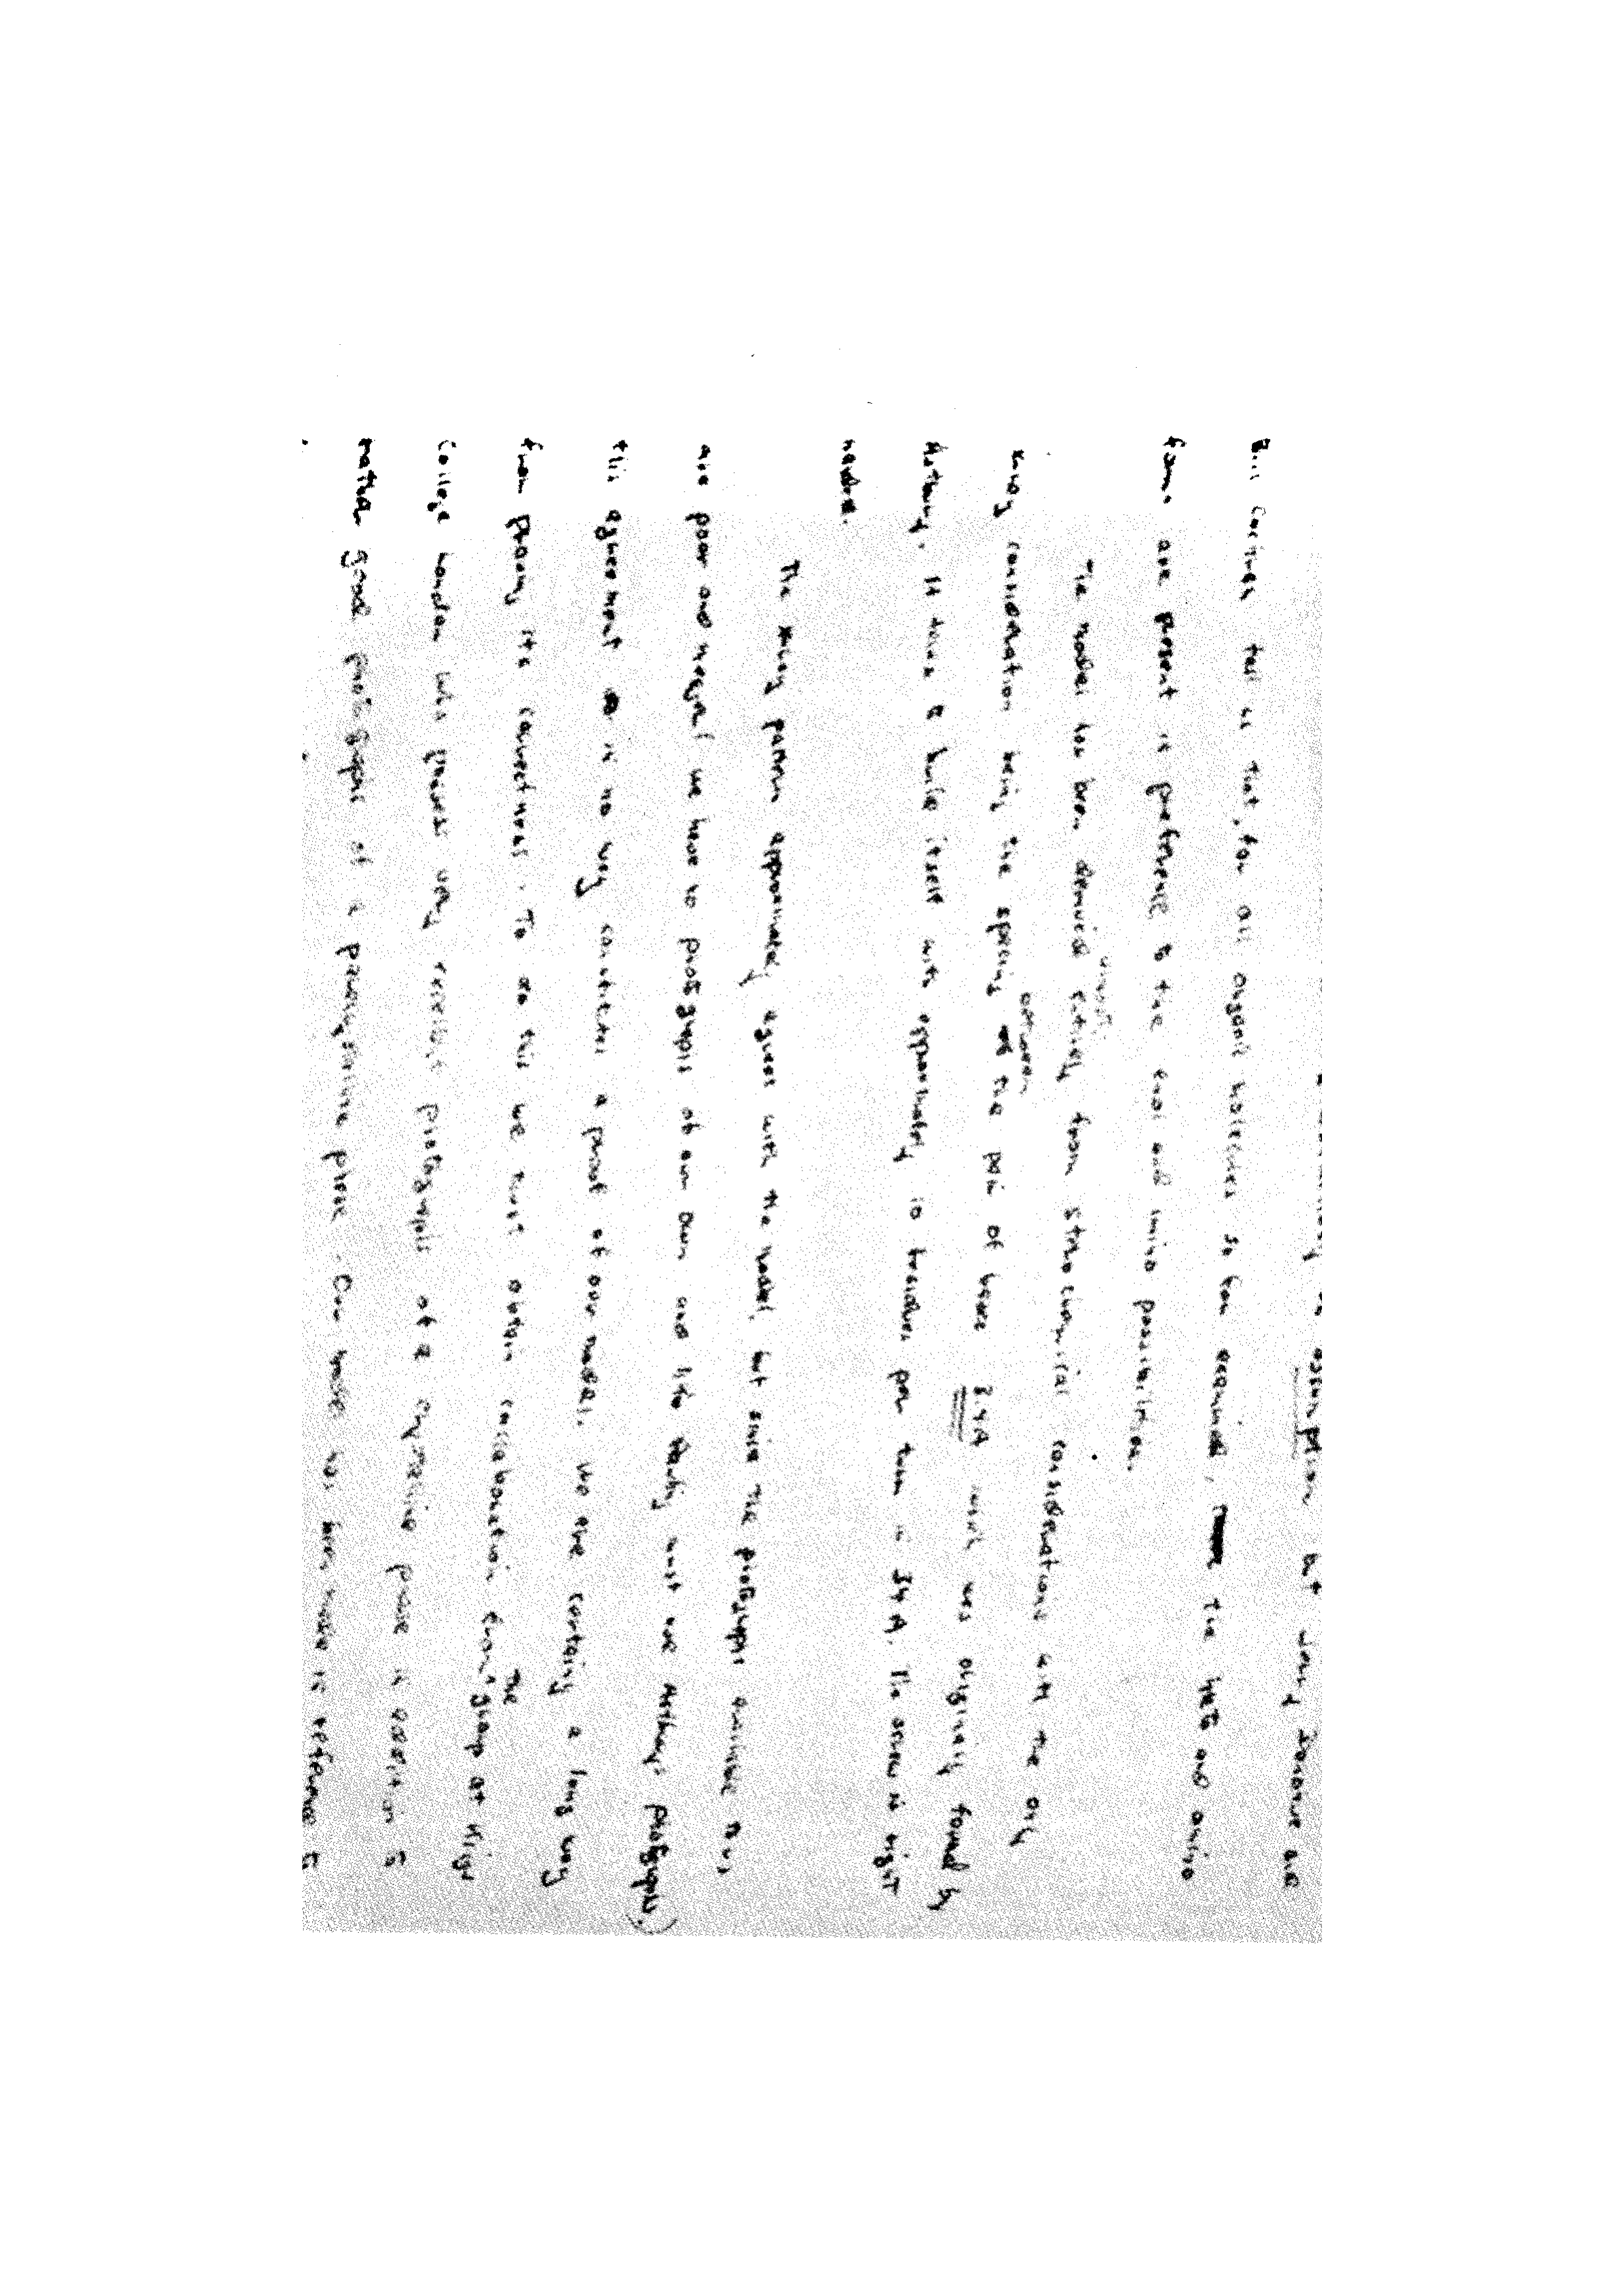 assumption, but Jerry Donohue and
Bill Cochran tell us that, for all organic molecules so far examined, the keto and amino
forms are present in preference to the enol and imino possibilities.
The model has been derived almost entirely from stereochemical considerations with the only
X-ray consideration being the spacing between the pair of bases 3.4 A which was originally found by
Astbury. It tends to build itself with approximately 10 residues per turn in 34 A. The screw is right
handed.
The X-ray pattern approximately agrees with the model, but since the photographs available to us
are poor and meagre (we have no photographs of our own and like Pauling must use Astbury's photographs.)
this agreement in no way constitutes a proof of our model. We are certainly a long way
from proving its correctness. To do this we must obtain collaboration from the group at Kings
College London who possess very excellent photographs of a crystalline phase in addition to
rather good photographs of a paracrystalline phase. Our model has been made in reference to